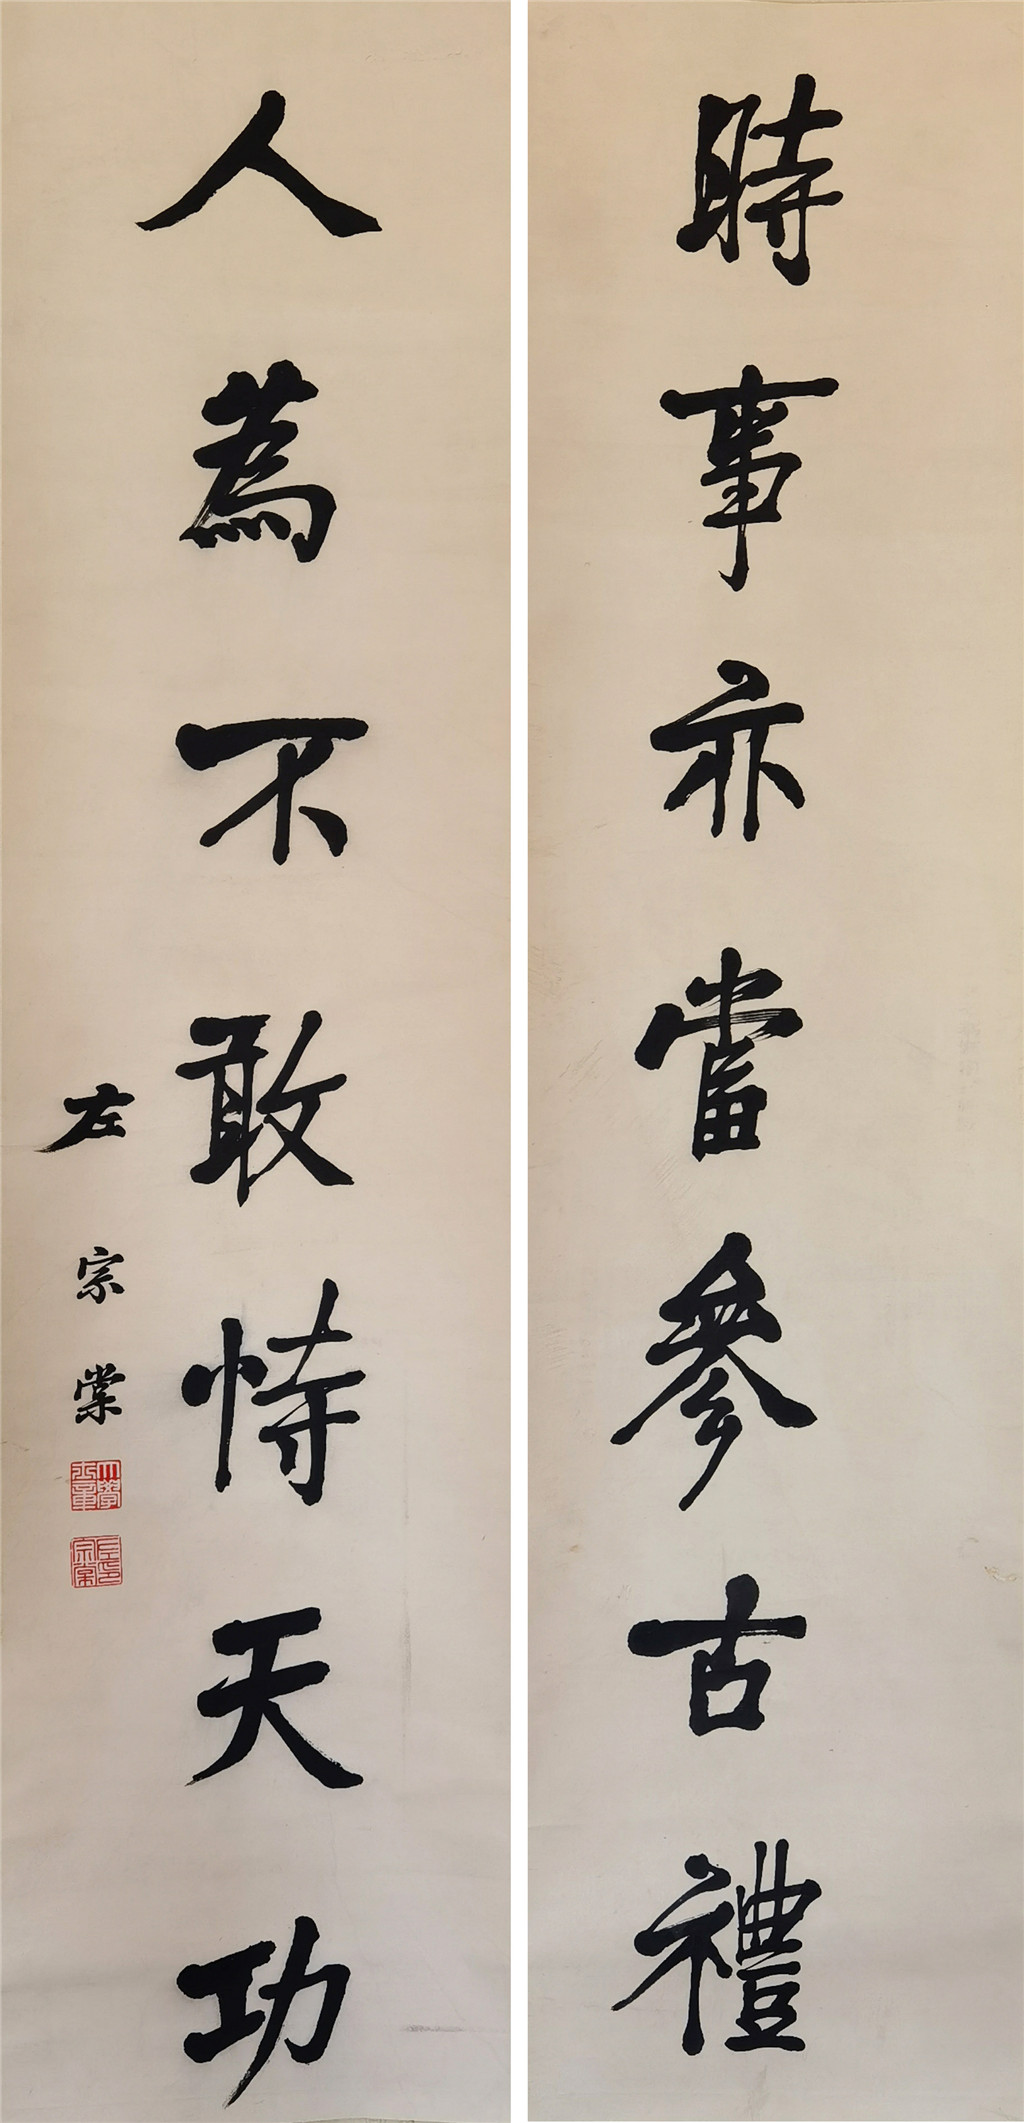 時事亦當參古禮
人為不敢恃天功
左宗棠